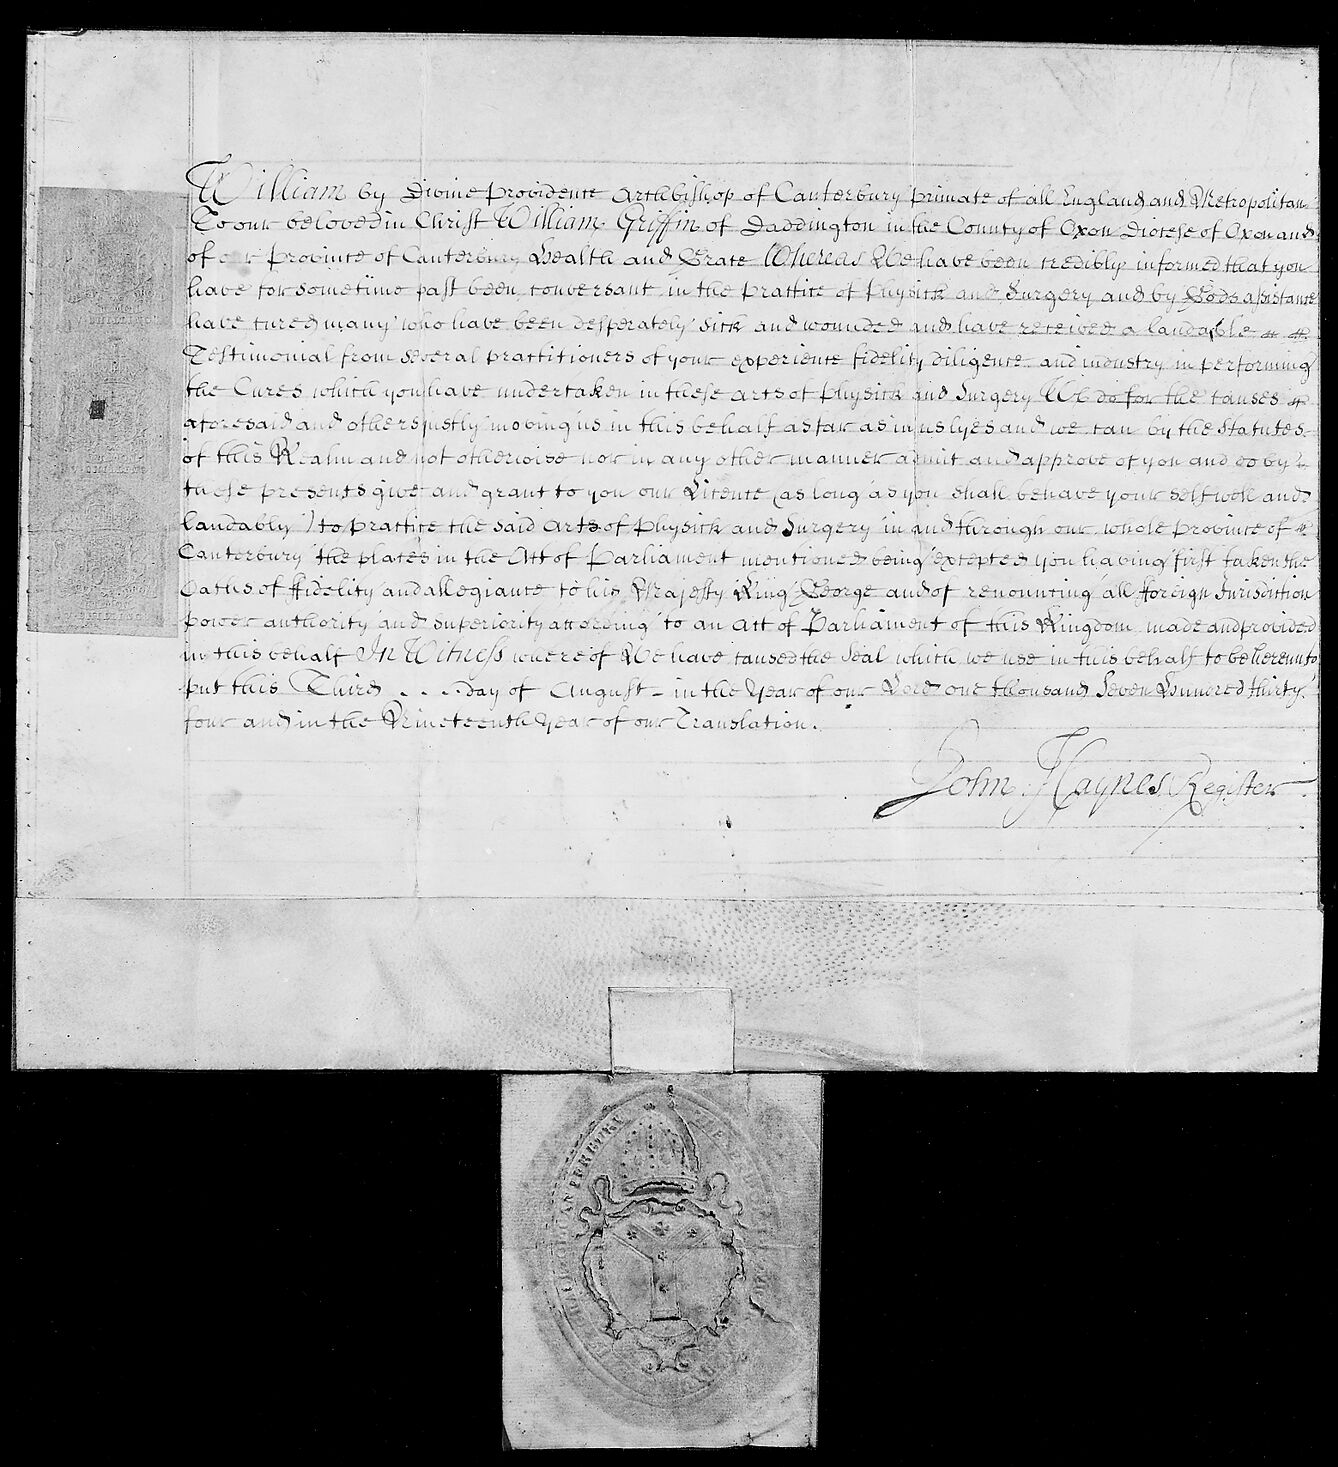 William by Divine Providence Archbishop of Canterbury Primate of all England and Metropolitan
To our beloved in Christ William Griffin of Daddington in the County of Oxon Diocese of Oxon and
of our Province of Canterbury Health and Grace Whereas We have been credibly informed that you
have for sometime past been conversant in the Practice of Physick and Surgery and by Gods assistance
have cured many who have been desperately sick and wounded and have received a laudable
Testimonial from several practitioners of your experience fidelity diligence and industry in performing
the Cures which you have undertaken in these arts of Physick and Surgery We do for the causes
aforesaid and others justly moving us in this behalf as far as in us lyes and we can by the Statutes
of this Realm and not otherwise nor in any other manner admit and approve of you and do by
these presents give and grant to you our Licence (as long as you shall behave your self well and
laudably) to practice the said Arts of Physick and Surgery in and through our whole province of
Canterbury the places in the Act of Parliament mentioned being excepted you having first taken the
Oaths of ffidelity and allegiance to his Majesty King George and of renouncing all fforeign Jurisdiction
power authority and superiority according to an Act of Parliament of this Kingdom made and provided
in this behalf In Witness whereof We have caused the Seal which we use in this behalf to be hereunto
put this Third . . . day of August - in the Year of our Lord one thousand Seven Hundred thirty
four and in the Nineteenth Year of our Translation.
John Haynes Register